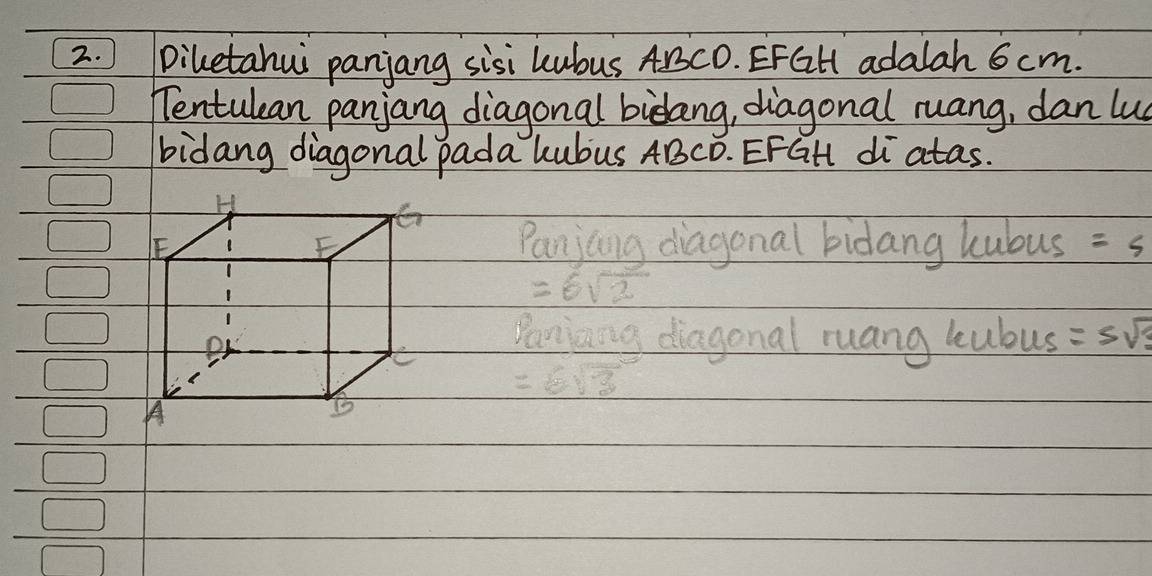 2. Diketahui panjang sisi kubus ABCD.EFGH adalah 6 cm.
Tentukan panjang diagonal bidang, diagonal ruang, dan
bidang diagonal pada kubus ABCD.EFGH di atas.
H
G
E
F
Panjang diagonal bidang kubus = s
= 6√2
Panjang diagonal ruang kubus = s√3
= 6√3
D
C
A
B